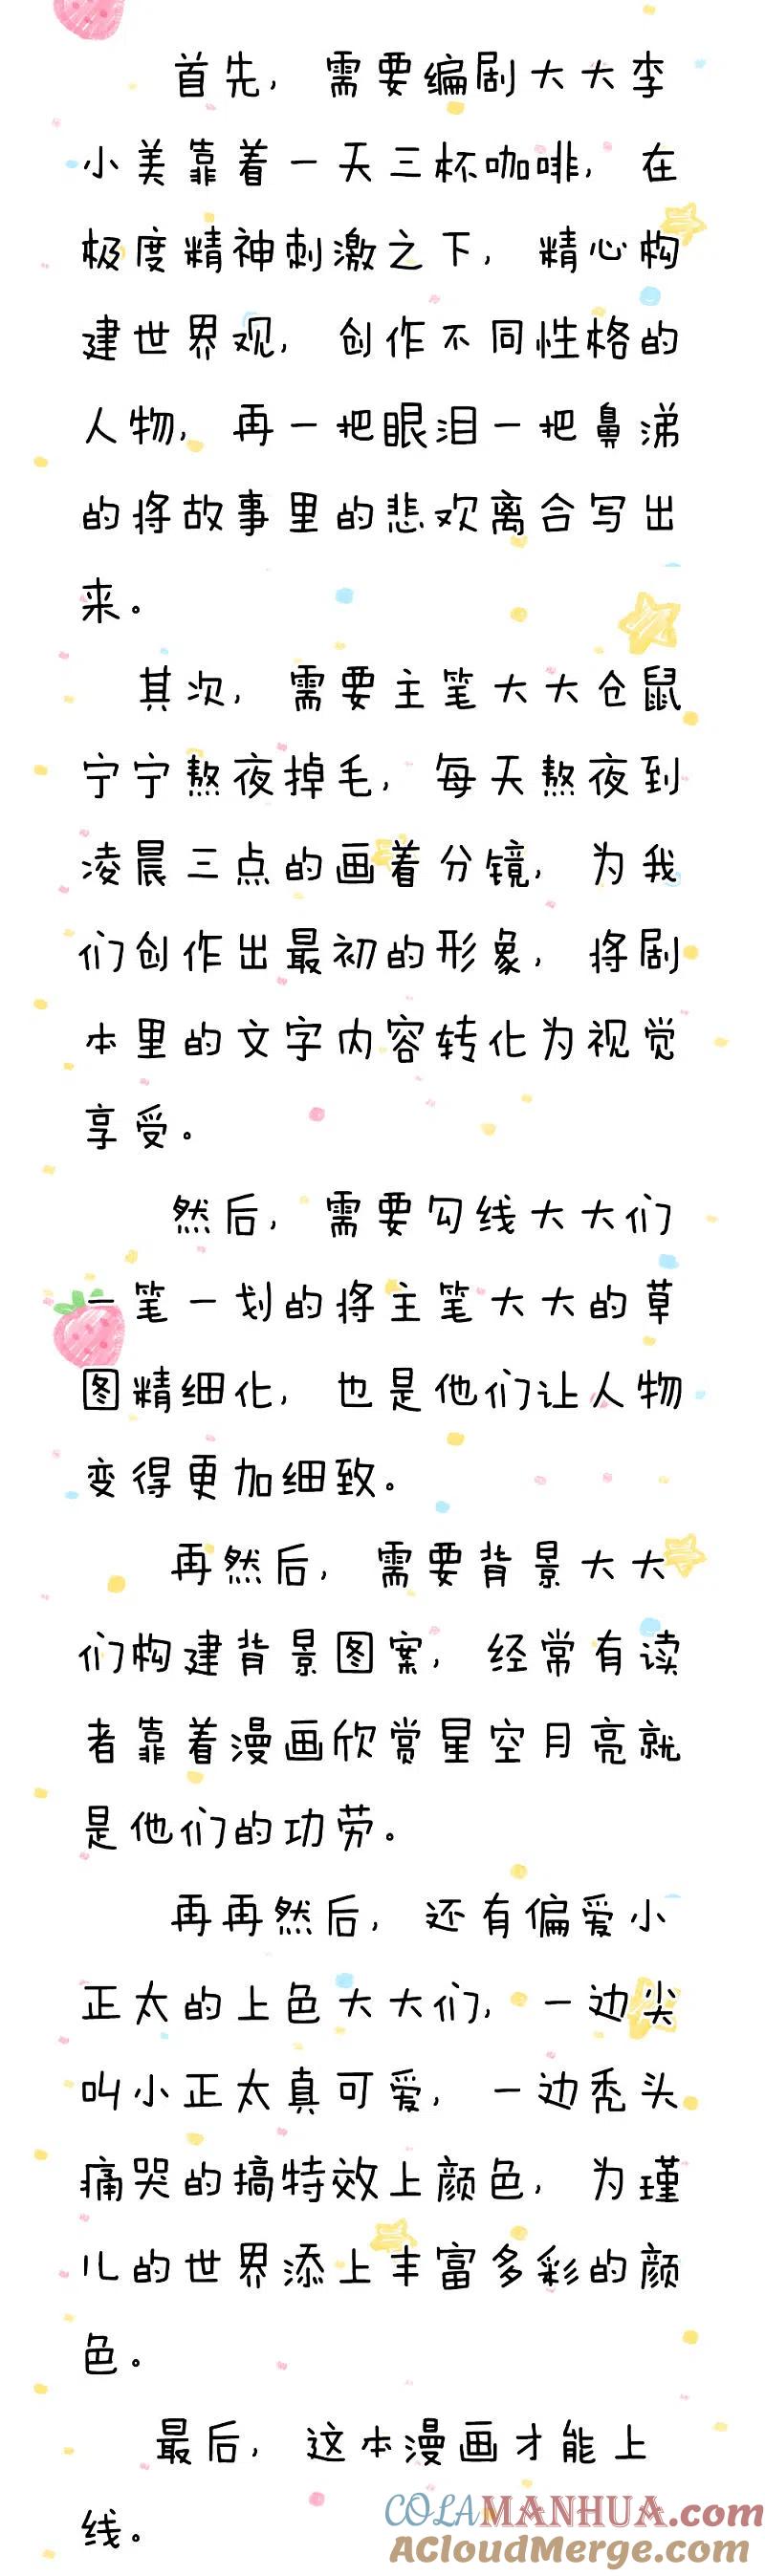 首先，需要编剧大大李
小美靠着一天三杯咖啡，在
极度精神刺激之下，精心构
建世界观，创作不同性格的
人物，再一把眼泪一把鼻涕
的将故事里的悲欢离合写出
来。
其次，需要主笔大大仓鼠
宁宁熬夜掉毛，每天熬夜到
凌晨三点的画着分镜，为我
们创作出最初的形象，将剧
本里的文字内容转化为视觉
享受。
然后，需要勾线大大们
一笔一划的将主笔大大的草
图精细化，也是他们让人物
变得更加细致。
再然后，需要背景大大
们构建背景图案，经常有读
者靠着漫画欣赏星空月亮就
是他们的功劳。
再再然后，还有偏爱小
正太的上色大大们，一边尖
叫小正太真可爱，一边秃头
痛哭的搞特效上颜色，为瑾
儿的世界添上丰富多彩的颜
色。
最后，这本漫画才能上
线。
COLAMANHUA.com
ACloudMerge.com